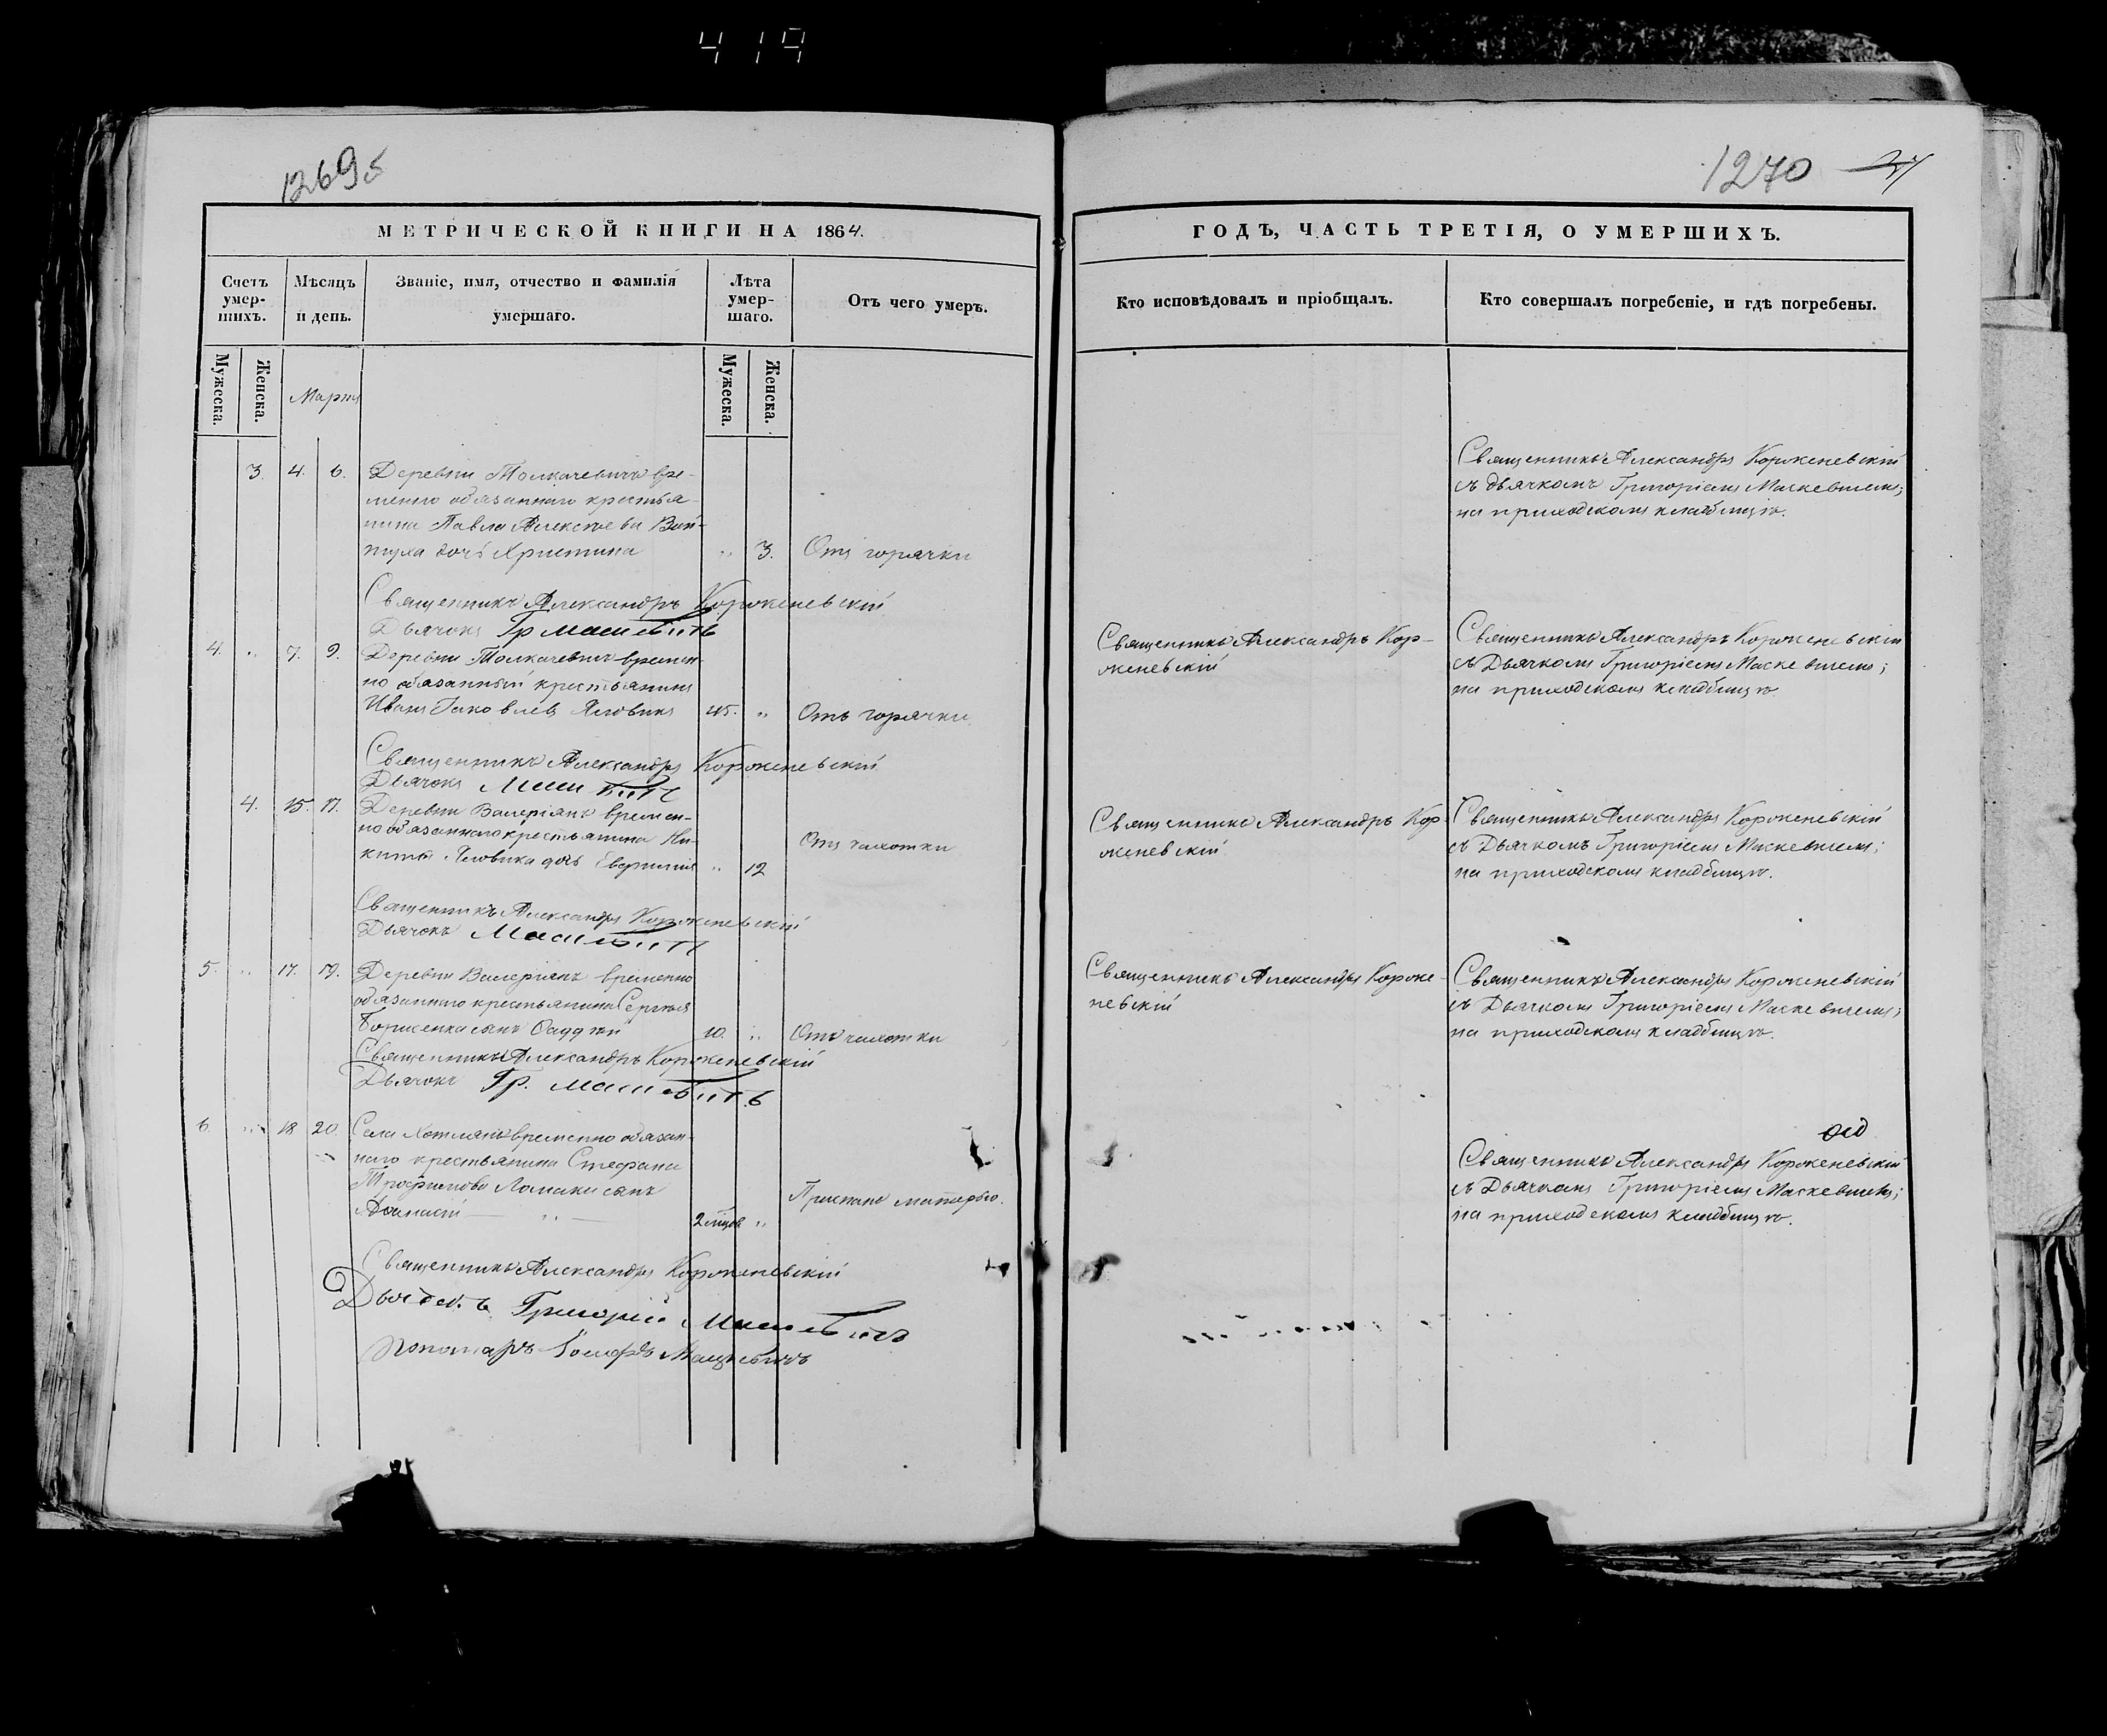 419
1269
1270
МЕТРИЧЕСКОЙ КНИГИ НА 1864.
Счетъ умер-шихъ.
Мѣсяцъ и день.
Званіе, имя, отчество и фамилія умершаго.
Лѣта умер-шаго.
Отъ чего умеръ.
Мужеска.
Женска.
Мужеска.
Женска.
Марта
3. 4. 6. Деревни Толкачевичъ вре-
менно обязаннаго крестья-
нина Павла Алексѣева
дочь Христина " 3. Отъ горячки
Священникъ Александръ Корженевскій
Дьячокъ Гр Маскевичъ
4. " 7. 9. Деревни Толкачевичъ времен-
но обязанный крестьянинъ
Иванъ Яковлевъ Яловикъ 45. " Отъ горячки
Священникъ Александръ Корженевскій
Дьячокъ Маскевичъ
4. 15. 17. Деревни Валеріянъ времен-
но обязаннаго крестьянина Ни-
киты Яловика дочь Евфимія " 12 Отъ чахотки
Священникъ Александръ Корженевскій
Дьячокъ Маскевичъ
5. " 17. 19. Деревни Валеріянъ временно
обязаннаго крестьянина Сергѣя
Борисенка сынъ Фаддѣй 10. " Отъ чахотки
Священникъ Александръ Корженевскій
Дьячокъ Гр. Маскевичъ
6. " 18 20. Села Хотлянъ временно обязан-
наго крестьянина Стефана
Трофимова Ломаки сынъ
Аѳанасій " 2 мѣсц. " Приспано матерью.
Священникъ Александръ Корженевскій
Дьячокъ Григорій Маскевичъ
Пономарь Іосифъ Мацкевичъ
ГОДЪ, ЧАСТЬ ТРЕТІЯ, О УМЕРШИХЪ.
Кто исповѣдовалъ и пріобщалъ.
Кто совершалъ погребеніе, и гдѣ погребены.
Священникъ Александръ Корженевскій
съ дьячкомъ Григоріемъ Маскевичемъ;
на приходскомъ кладбищѣ.
Священникъ Александръ Кор-
женевскій
Священникъ Александръ Корженевскій
съ Дьячкомъ Григоріемъ Маскевичемъ;
на приходскомъ кладбищѣ
Священникъ Александръ Кор-
женевскій
Священникъ Александръ Корженевскій
съ Дьячкомъ Григоріемъ Маскевичемъ;
на приходскомъ кладбищѣ.
Священникъ Александръ Корже-
невскій
Священникъ Александръ Корженевскій
съ Дьячкомъ Григоріемъ Маскевичемъ;
на приходскомъ кладбищѣ.
Священникъ Александръ Корженевскій
съ Дьячкомъ Григоріемъ Маскевичемъ;
на приходскомъ кладбищѣ.